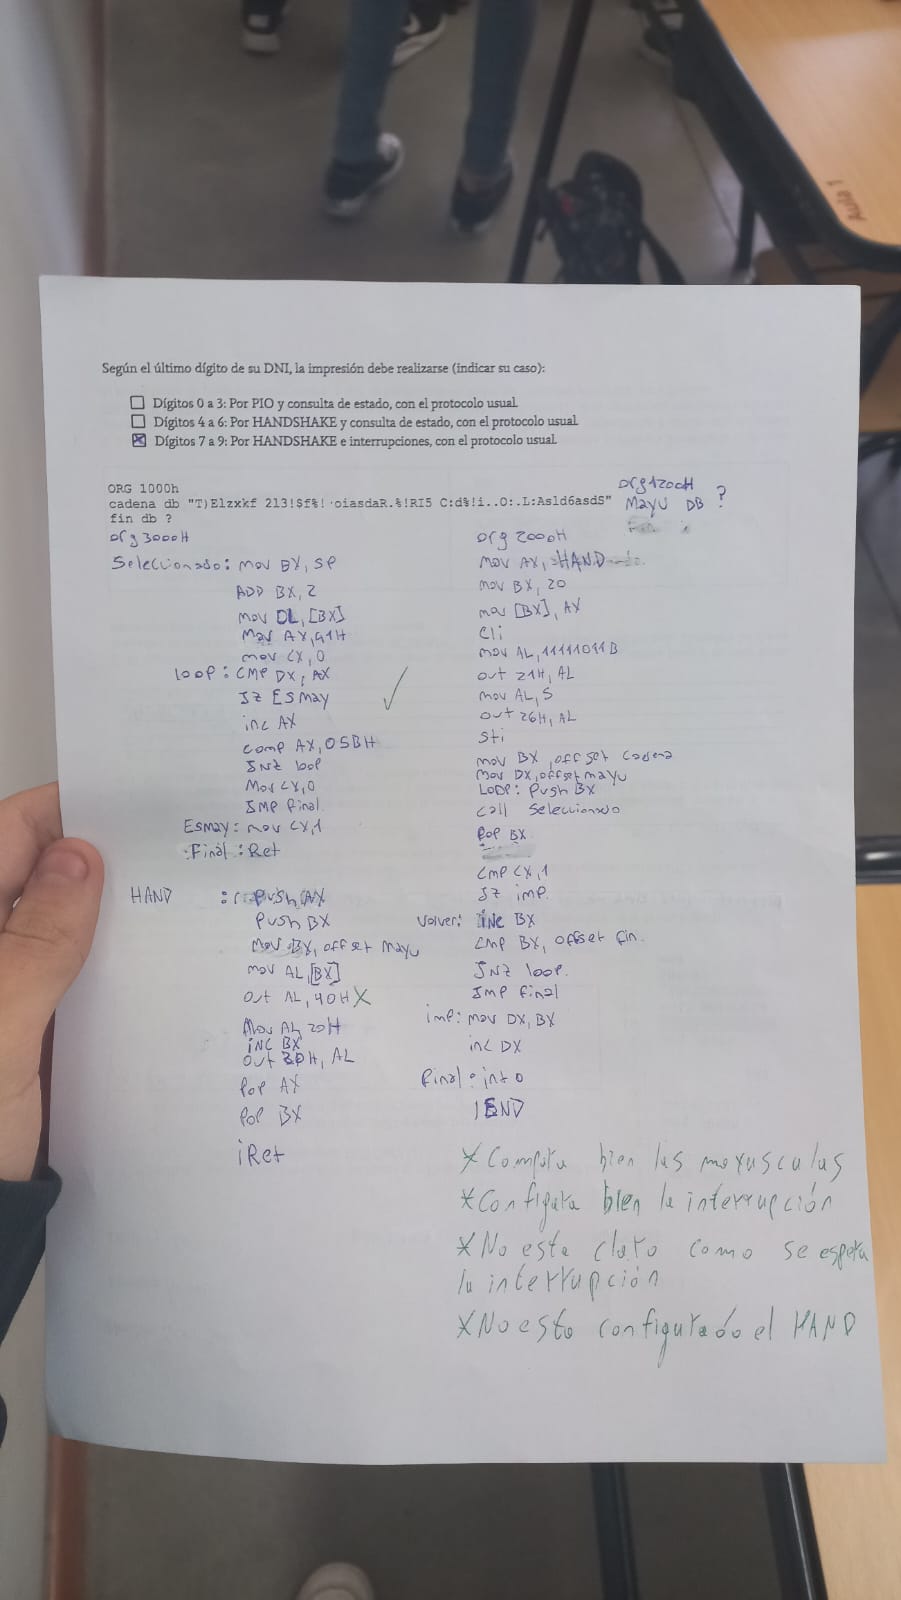 Aula 1
Según el último dígito de su DNI, la impresión debe realizarse (indicar su caso):
Dígitos 0 a 3: Por PIO y consulta de estado, con el protocolo usual
Dígitos 4 a 6: Por HANDSHAKE y consulta de estado, con el protocolo usual
Dígitos 7 a 9: Por HANDSHAKE e interrupciones, con el protocolo usual.
ORG 1000h
cadena db "T)Elzxkf 213!$f%! ·oiasdaR.%!RI5 C:d%!i..O:.L:As1d6asdS"
fin db ?
org 1200H
Mayu DB ?
org 3000H
Seleccionado: mov BX, SP
ADD BX, 2
mov DL, [BX]
Mov AX, 41H
mov CX, 0
loop: CMP DX, AX
JZ ESmay
inc AX
comp AX, 05BH
JNZ loop
Mov CX, 0
JMP final
Esmay: mov CX, 1
Final: Ret
HAND : Push AX
Push BX
Mov BX, offset Mayu
mov AL, [BX]
out AL, 40H X
Mov AL, 20H
iNC BX
out 20H, AL
Pop AX
Pop BX
iRet
org 2000H
Mov AX, HAND
mov BX, 20
mov [BX], AX
Cli
mov AL, 11111011B
out 21H, AL
mov AL, 5
out 26H, AL
Sti
mov BX, offset cadena
Mov DX, offset mayu
Loop: Push BX
call Seleccionado
Pop BX
CMP CX, 1
JZ imp.
Volver: iNC BX
CMP BX, offset fin.
JNZ loop.
JMP final
imp: mov DX, BX
inc DX
final: int 0
END
* Computa bien las mayusculas
* Configura bien la interrupción
* No esta claro como se espera
la interrupción
* No esta configurado el HAND